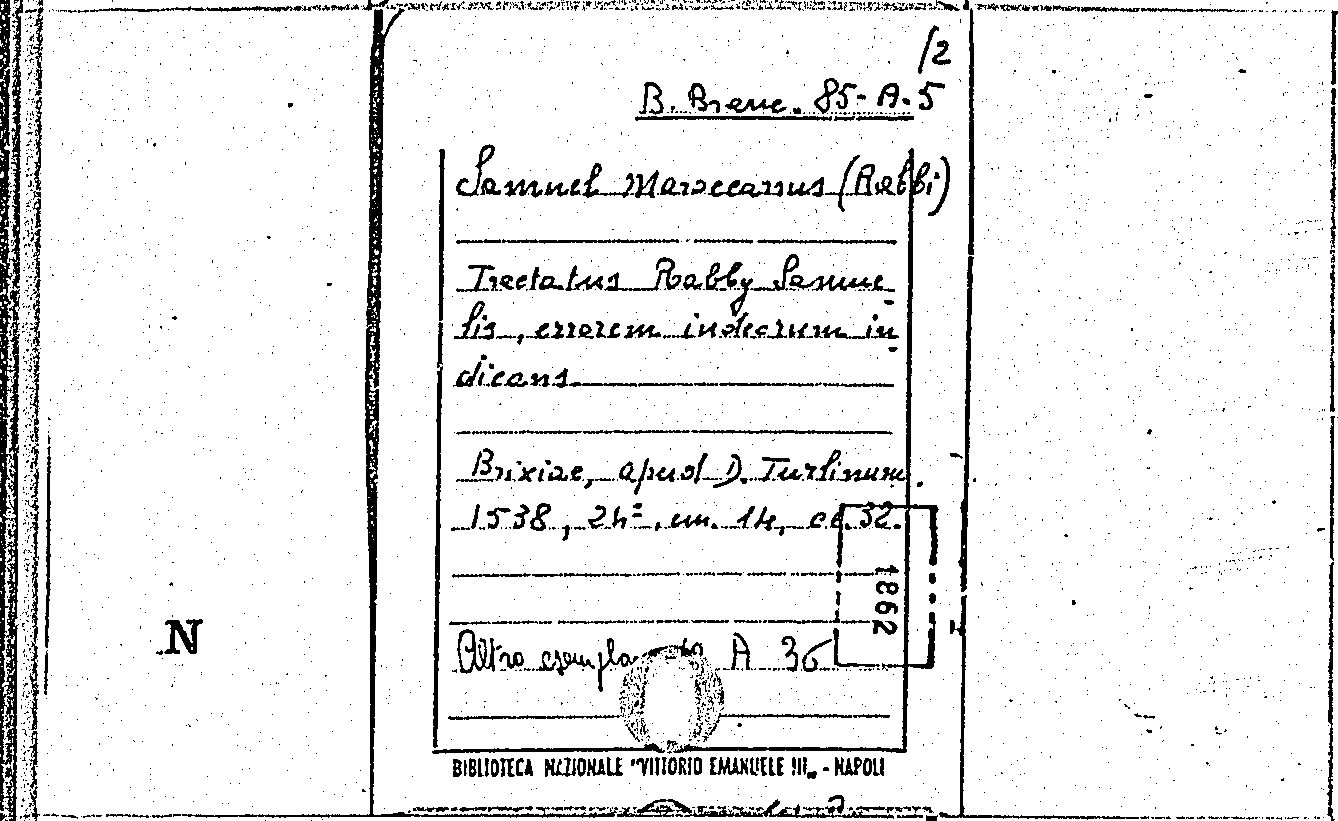 /2
B. Branc. 85-A-5
Samuel Maroccanus (Rabbi)
Tractatus Rabby Samue
lis, errorem indeorum in
dicans
Brixiae, apud D. Turlinum.
1538, 24º, cm. 14, cc. 32.
1862
N
Altro A 36
BIBLIOTECA NAZIONALE "VITTORIO EMANUELE III„ - NAPOLI